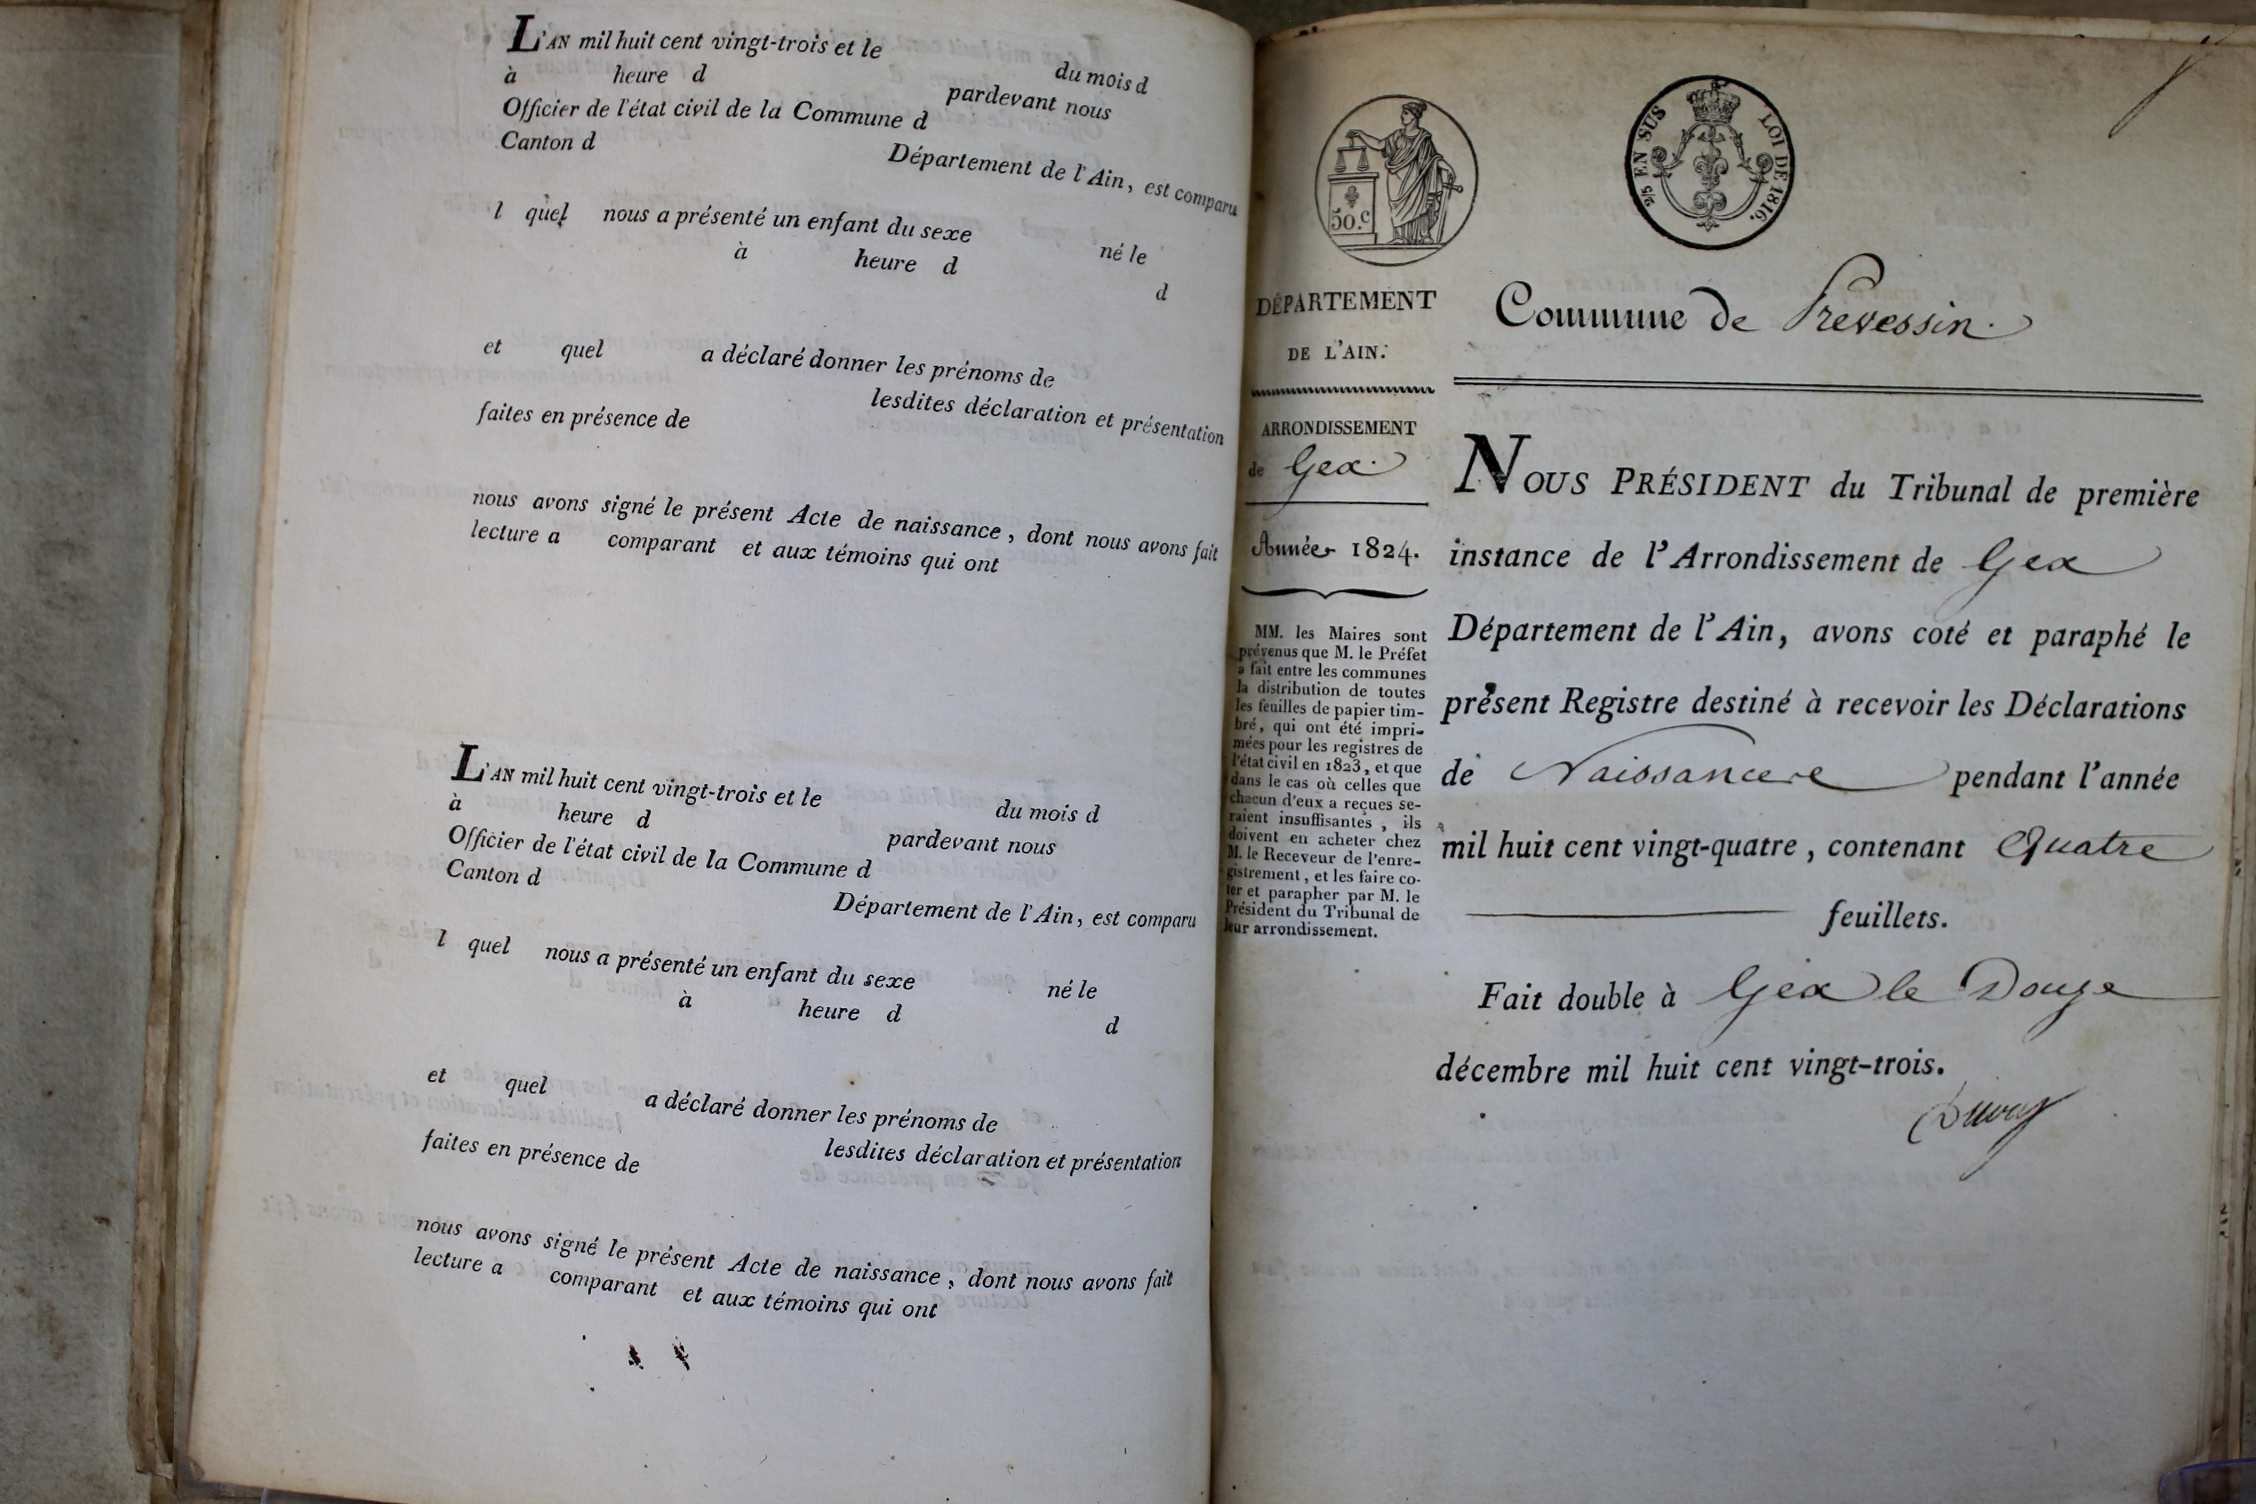 L'AN mil huit cent vingt-trois et le du mois d
à heure d pardevant nous
Officier de l'état civil de la Commune d
Canton d Département de l'Ain, est comparu
l quel nous a présenté un enfant du sexe né le
à heure d d
et quel a déclaré donner les prénoms de
lesdites déclaration et présentation
faites en présence de
nous avons signé le présent Acte de naissance, dont nous avons fait
lecture a comparant et aux témoins qui ont
L'AN mil huit cent vingt-trois et le du mois d
à heure d pardevant nous
Officier de l'état civil de la Commune d
Canton d Département de l'Ain, est comparu
l quel nous a présenté un enfant du sexe né le
à heure d d
et quel a déclaré donner les prénoms de
lesdites déclaration et présentation
faites en présence de
nous avons signé le présent Acte de naissance, dont nous avons fait
lecture a comparant et aux témoins qui ont
50.c
2/5 EN SUS LOI DE 1816.
DÉPARTEMENT
DE L'AIN.
ARRONDISSEMENT
de Gex.
Année 1824.
MM. les Maires sont
prévenus que M. le Préfet
a fait entre les communes
la distribution de toutes
les feuilles de papier tim-
bré, qui ont été impri-
mées pour les registres de
l'état civil en 1823, et que
dans le cas où celles que
chacun d'eux a reçues se-
raient insuffisantes, ils
doivent en acheter chez
M. le Receveur de l'enre-
gistrement, et les faire co-
ter et parapher par M. le
Président du Tribunal de
leur arrondissement.
Commune de Prevessin.
NOUS PRÉSIDENT du Tribunal de première
instance de l'Arrondissement de Gex
Département de l'Ain, avons coté et paraphé le
présent Registre destiné à recevoir les Déclarations
de Naissance pendant l'année
mil huit cent vingt-quatre, contenant Quatre
feuillets.
Fait double à Gex le Douze
décembre mil huit cent vingt-trois.